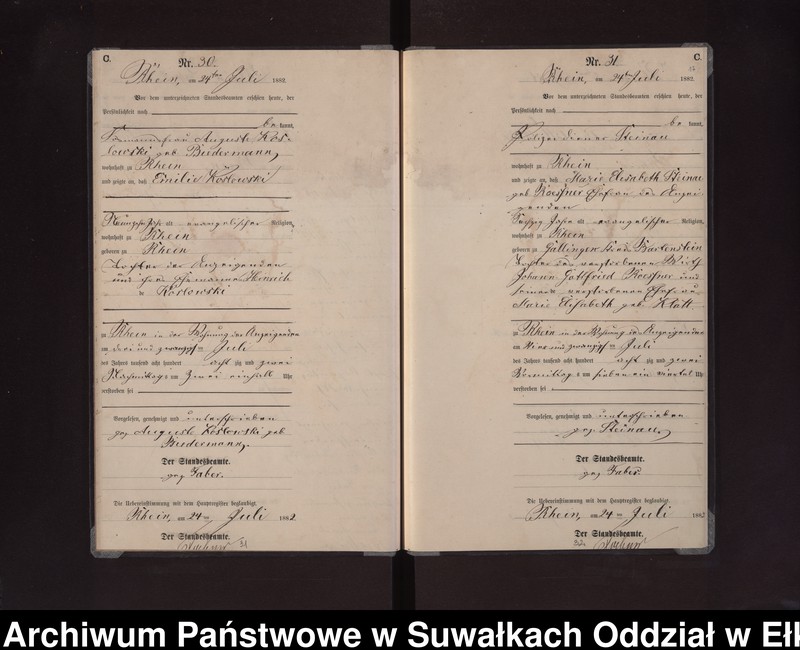 C.
Nr. 30.
Rhein, am 24ten Juli 1882.
Vor dem unterzeichneten Standesbeamten erschien heute, der
Persönlichkeit nach
be kannt,
Auguste Kos-
lowski geb. Biedermann,
wohnhaft zu Rhein
und zeigte an, daß Emilie Koslowski
alt, evangelischer Religion,
wohnhaft zu Rhein
geboren zu Rhein
Tochter der Anzeigenden
und ihres Ehemannes Heinrich
Koslowski
zu Rhein in der Wohnung der Anzeigenden
am drei und zwanzigsten Juli
des Jahres tausend acht hundert acht zig und zwei
Nachmittags um zwei einhalb Uhr
verstorben sei
Vorgelesen, genehmigt und unterschrieben
gez. Auguste Koslowski geb.
Biedermann,
Der Standesbeamte.
gez. Faber.
Die Uebereinstimmung mit dem Hauptregister beglaubigt.
Rhein, am 24ten Juli 1882.
Der Standesbeamte.
31
C.
Nr. 31
Rhein, am 24ten Juli 1882.
Vor dem unterzeichneten Standesbeamten erschien heute, der
Persönlichkeit nach
be kannt,
Polizeidiener Steinau
wohnhaft zu Rhein
und zeigte an, daß Marie Elisabeth Steinau
geb. Roessner Ehefrau des Anzei-
genden
Jahre alt, evangelischer Religion,
wohnhaft zu Rhein
geboren zu Gallingen Kreis Bartenstein
Tochter des verstorbenen Wirth
Johann Gottfried Roessner und
seiner verstorbenen Ehefrau
Marie Elisabeth geb. Klatt.
zu Rhein in der Wohnung des Anzeigenden
am zwanzigsten Juli
des Jahres tausend acht hundert acht zig und zwei
Vormittags um sieben ein viertel Uhr
verstorben sei
Vorgelesen, genehmigt und unterschrieben
gez. Steinau,
Der Standesbeamte.
gez. Faber.
Die Uebereinstimmung mit dem Hauptregister beglaubigt.
Rhein, am 24ten Juli 1882
Der Standesbeamte.
Archiwum Państwowe w Suwałkach Oddział w Ełk